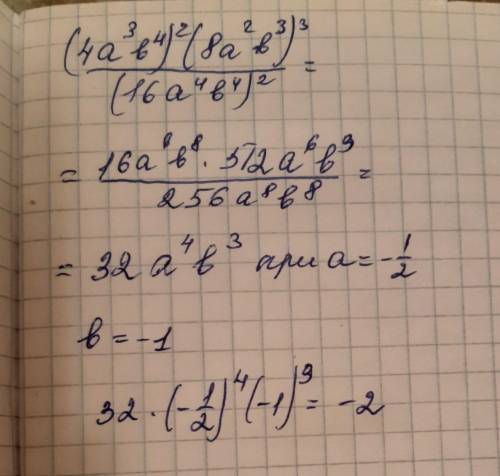 (4a³b⁴)²(8a²b³)³ / (16a⁴b⁴)² =
= 16a⁶b⁸ · 512a⁶b⁹ / 256a⁸b⁸ =
= 32a⁴b³ при a = -1/2
b = -1
32 · (-1/2)⁴(-1)⁹ = -2